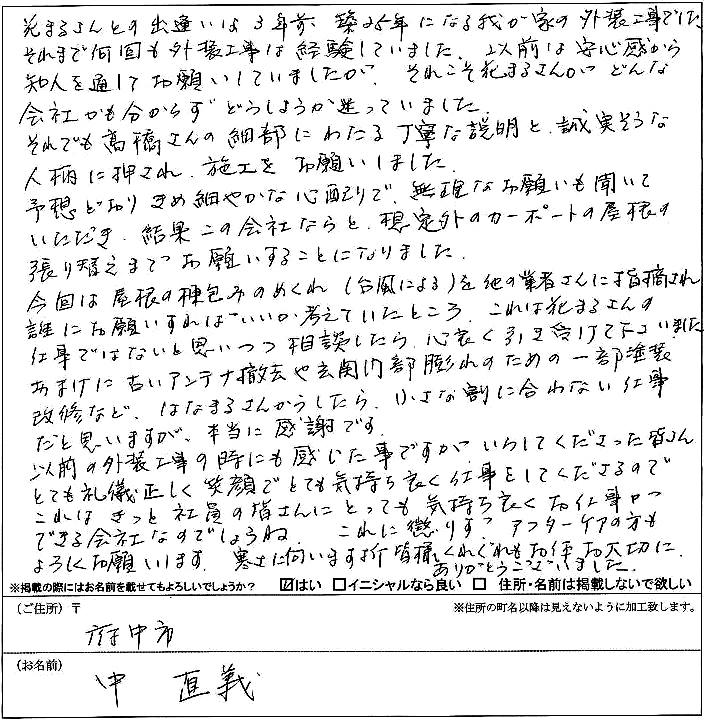 花まるさんとの出逢いは3年前、築25年になる我が家の外装工事でした
それまで何回も外装工事は経験していました。以前は安心感から
知人を通してお願いしていましたが、それこそ花まるさんがどんな
会社かも分からずどうしようか迷っていました。
それでも髙橋さんの細部にわたる丁寧な説明と、誠実そうな
人柄に押され、施工をお願いしました。
予想どおりきめ細やかな心配りで、無理なお願いも聞いて
いただき、結果この会社ならと、想定外のカーポートの屋根の
張り替えまでお願いすることになりました。
今回は屋根の棟包みのめくれ(台風による)を他の業者さんに指摘され
誰にお願いすればいいか考えていたところ、これは花まるさんの
仕事ではないと思いつつ相談したら、心良く引き受けて下さいました
おまけに古いアンテナ撤去や玄関内部膨れのための一部塗装
改修など、はなまるさんからしたら、小さな割に合わない仕事
だと思いますが、本当に感謝です。
以前の外装工事の時にも感じた事ですが、いらしてくださった皆さん
とても礼儀正しく笑顔でとても気持ち良く仕事をしてくださるので
これはきっと社員の皆さんにとっても気持ち良くお仕事が
できる会社なのでしょうね。これに懲りず、アフターケアの方も
よろしくお願いします。寒さに向います折皆様くれぐれもお体お大切に
ありがとうございました。
※掲載の際にはお名前を載せてもよろしいでしょうか? ☑はい □イニシャルなら良い □ 住所・名前は掲載しないで欲しい
(ご住所)〒 ※住所の町名以降は見えないように加工致します。
府中市
(お名前)
中 直義